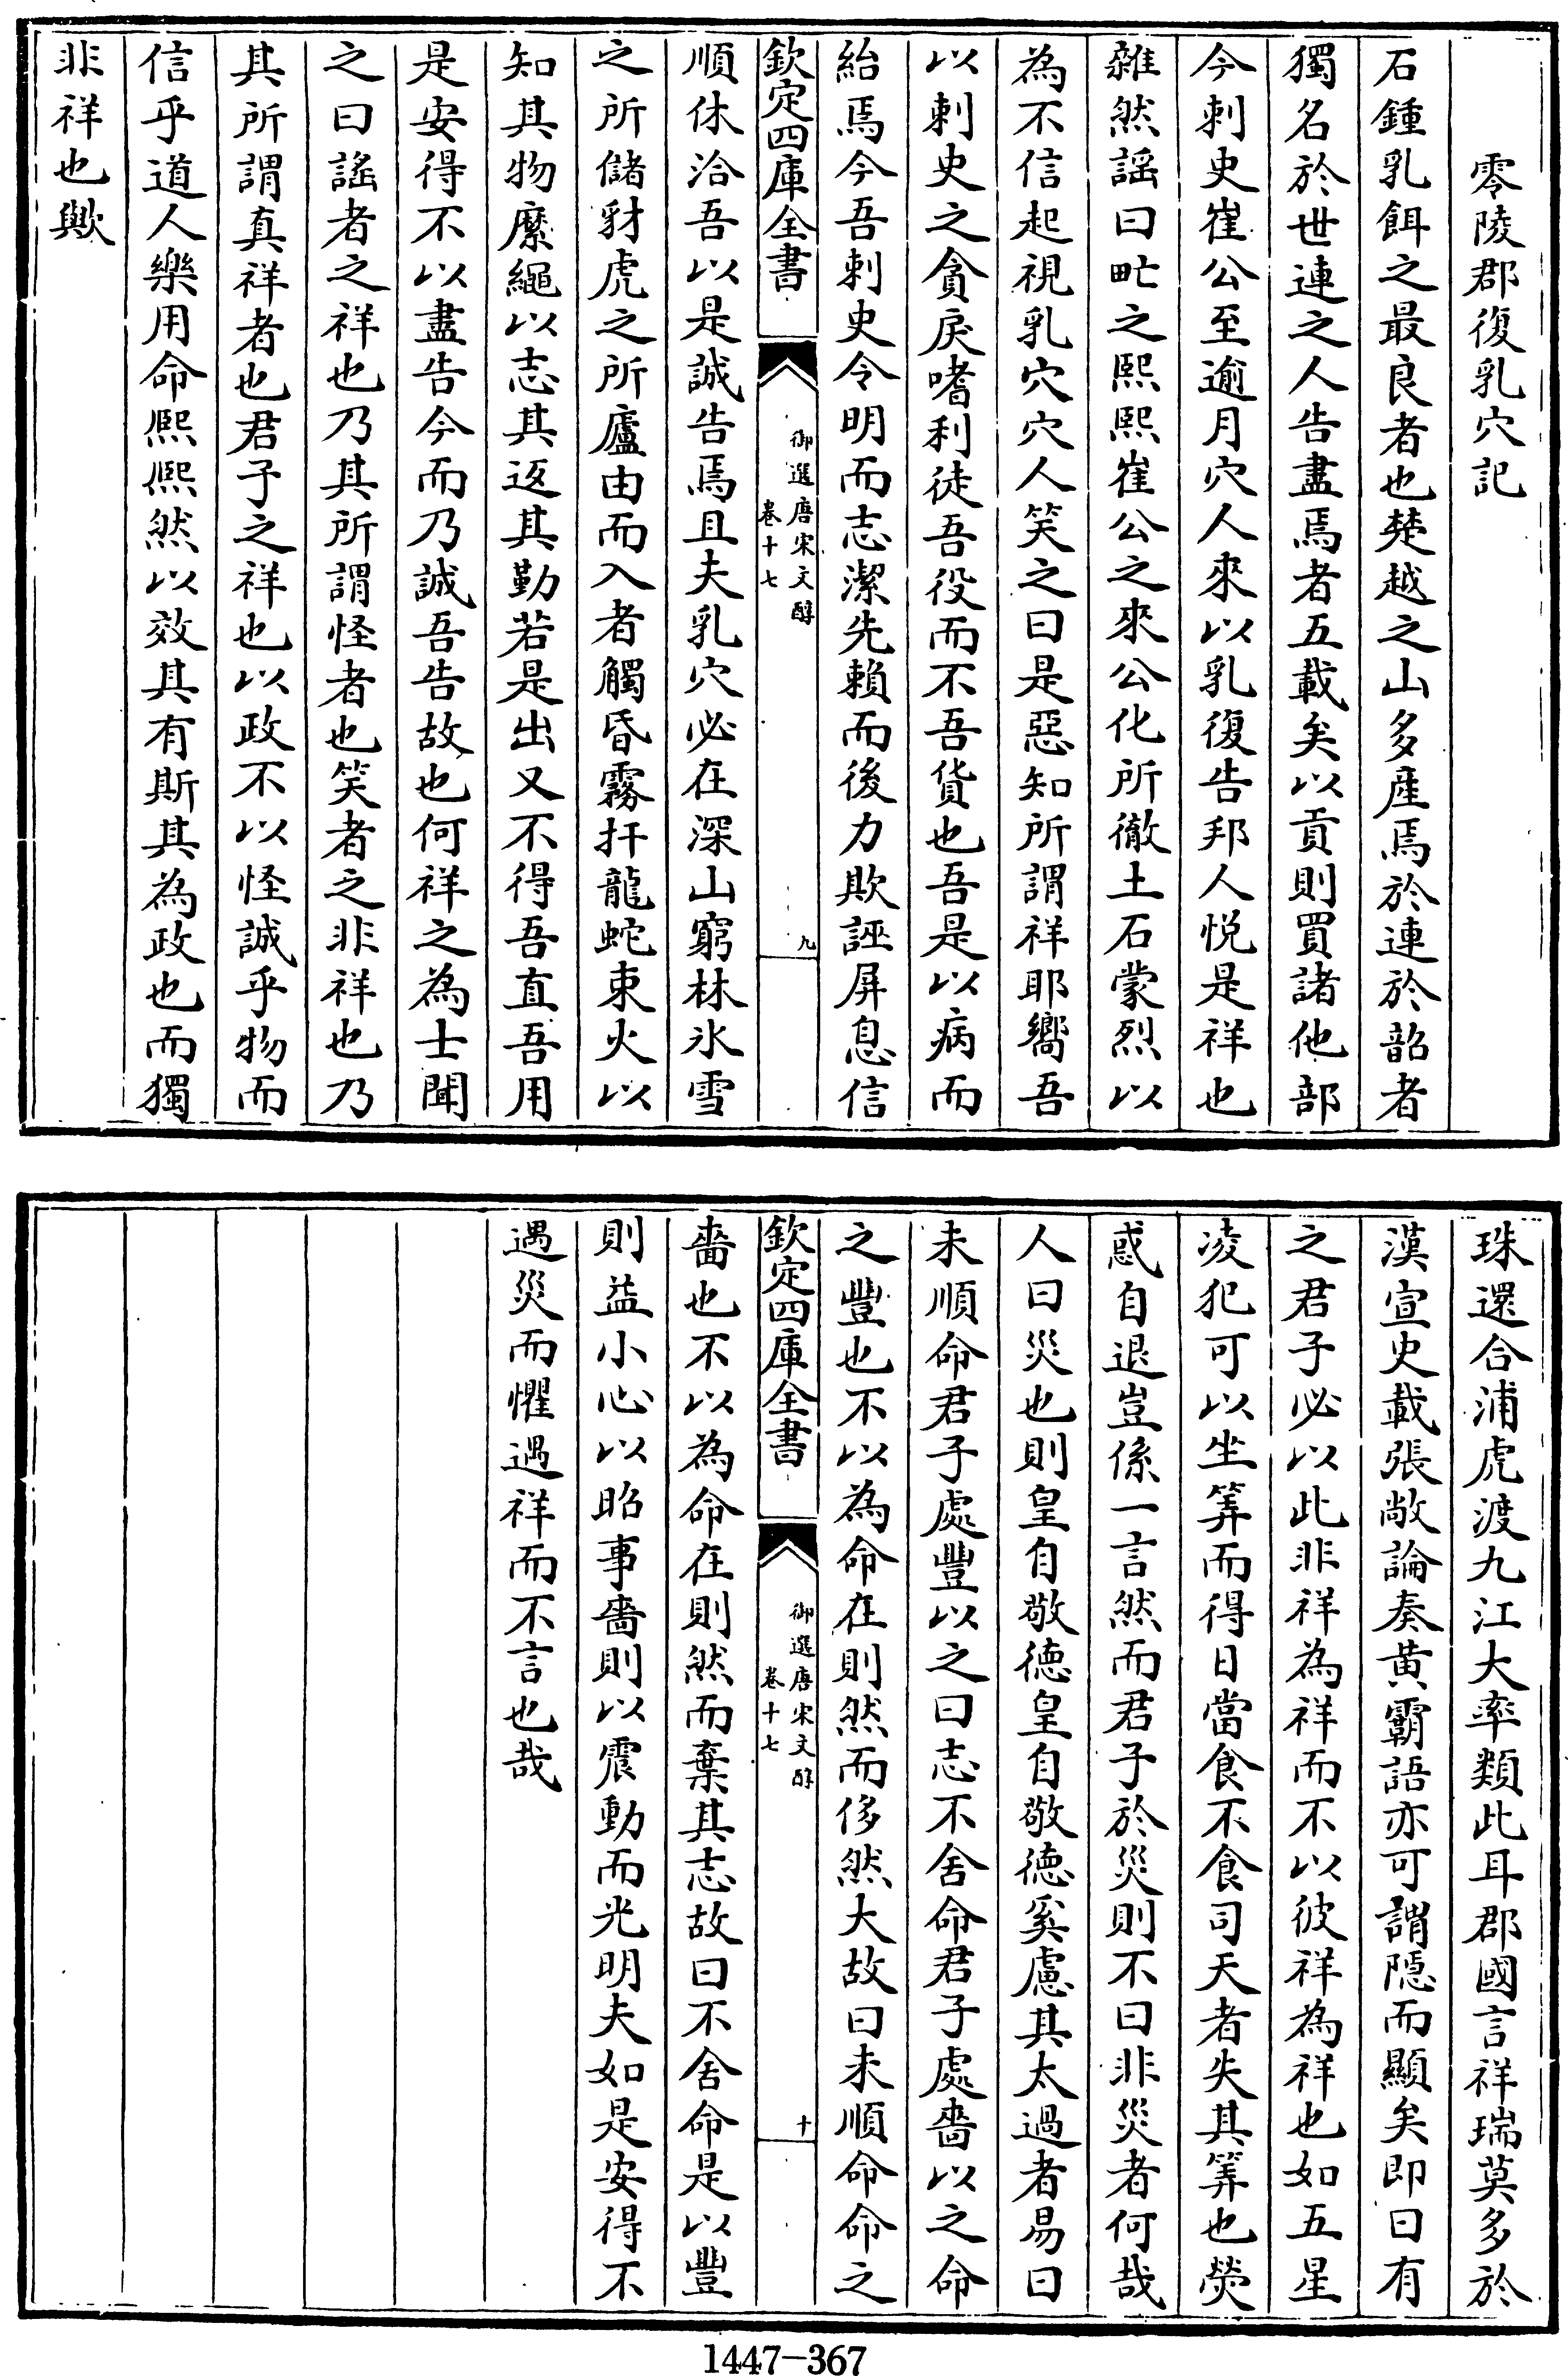 零陵郡復乳穴記
石鍾乳餌之最良者也楚越之山多產焉於連於韶者
獨名於世連之人告盡焉者五載矣以貢則買諸他部
今刺史崔公至逾月穴人來以乳復告邦人悅是祥也
雜然謡曰甿之熙熙崔公之來公化所徹土石蒙烈以
為不信起視乳穴穴人笑之曰是惡知所謂祥耶嚮吾
以刺史之貪戾嗜利徒吾役而不吾貨也吾是以病而
紿焉今吾刺史令明而志潔先賴而後力欺誣屏息信
欽定四庫全書
御選唐宋文醇
卷十七
九
順休洽吾以是誠告焉且夫乳穴必在深山窮林氷雪
之所儲豺虎之所廬由而入者觸昏霧扞龍蛇束火以
知其物縻繩以志其返其勤若是出又不得吾直吾用
是安得不以盡告今而乃誠吾告故也何祥之為士聞
之曰謡者之祥也乃其所謂怪者也笑者之非祥也乃
其所謂真祥者也君子之祥也以政不以怪誠乎物而
信乎道人樂用命熙熙然以效其有斯其為政也而獨
非祥也歟
珠還合浦虎渡九江大率類此耳郡國言祥瑞莫多於
漢宣史載張敞論奏黃霸語亦可謂隱而顯矣即曰有
之君子必以此非祥為祥而不以彼祥為祥也如五星
凌犯可以坐筭而得日當食不食司天者失其筭也熒
惑自退豈係一言然而君子於災則不曰非災者何哉
人曰災也則皇自敬徳皇自敬徳奚慮其太過者易曰
未順命君子處豐以之曰志不舍命君子處嗇以之命
之豐也不以為命在則然而侈然大故曰未順命命之
欽定四庫全書
御選唐宋文醇
卷十七
十
嗇也不以為命在則然而棄其志故曰不舍命是以豐
則益小心以昭事嗇則以震動而光明夫如是安得不
遇災而懼遇祥而不言也哉
1447-367